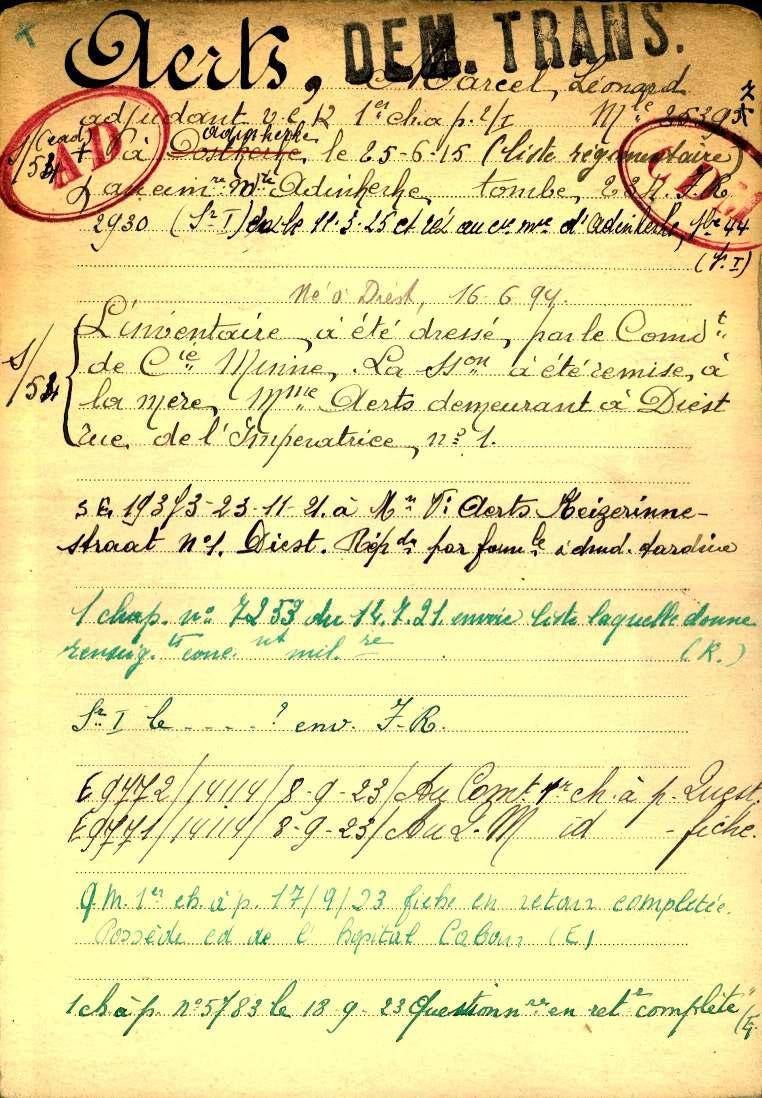 Aerts, DEM. TRANS.
Marcel, Léonard
adjudant v.c.k 1er ch.a p. 2/I Mle
(cad) Adinkerke
AD
S/54 + à Oostkerke, le 25-6-15 (liste régimentaire)
au cim. re mre Adinkerke tombe, J.R
2930 (Sr I) le 11-3-25 et au mre d'Adinkerke, 44
(S.I)
Né à Diest, 16-6-94.
L'inventaire, a été dressé, par le Comdt
de Cie Minne, La sson a été remise, à
S/54
la mère, Mme Aerts demeurant à Diest
rue de l'Imperatrice, no 1.
S E. 19373-23-11-21. à Mr Vr Aerts Keizerinne-
straat No 1. Diest. Rép par
1 chap. no 7253 du 14.7.21. envoie liste laquelle donne
renseig. ts conc. nt mil. re (R.)
Sr I le - - - - ? env. J-R.
E 9772/14114/8-9-23/Au Comt 1er ch. à p. Quest.
E 9771/14114/8-9-23/Au Q. M id - fiche.
Q M. 1er ch. à p. 17/9/23 fiche en retour complétée.
Possède ed de l'hopital Cabour (E)
1 ch à p. no 5783 le 18-9-23 Questionnre en retr complété
(E